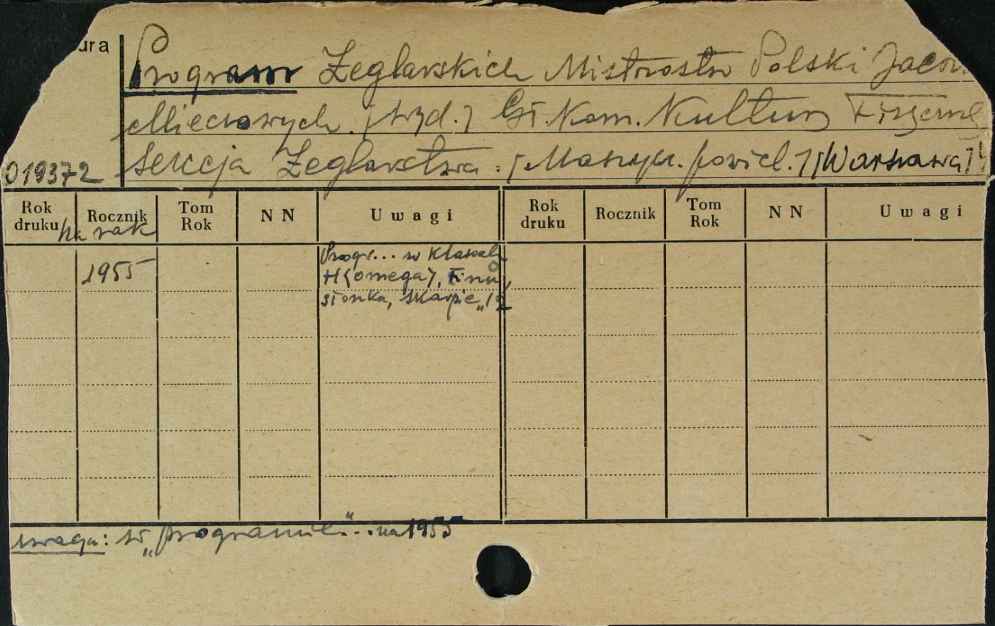 ura
Program Żeglarskich Mistrzostw Polski Jacht
Mieczowych. [Wyd.] Gł. Kom. Kultury Fizyczne
019372 Sekcja Żeglarstwa. [Maszyn. powiel.] [Warszawa]
Rok druku Rocznik Tom Rok N N Uwagi Rok druku Rocznik Tom Rok N N Uwagi
na rok
1955 Progr... w klasach
H (omega), Finn,
słonka,
uwaga: w „programie"... na 1955